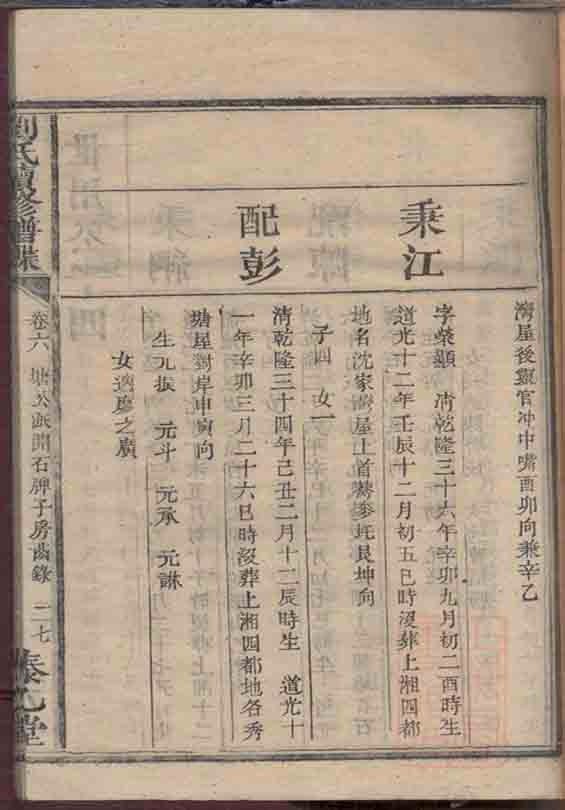 灣屋後靈官冲中嘴酉卯向兼辛乙
秉江
字榮顯　清乾隆三十六年辛卯九月初二酉時生
道光十二年壬辰十二月初五巳時沒葬上湘四都
地名沈家灣屋上首蕎麥坵艮坤向
子四　女一
配彭
清乾隆三十四年己丑二月十二辰時生　道光十
一年辛卯三月二十六巳時沒葬上湘四都地名秀
塘屋對岸申寅向
生元振　元斗　元承　元諃
女適廖之廣
劉氏續修譜牒
卷六　塘公派開石牌子房齒錄　二七
泰乙堂